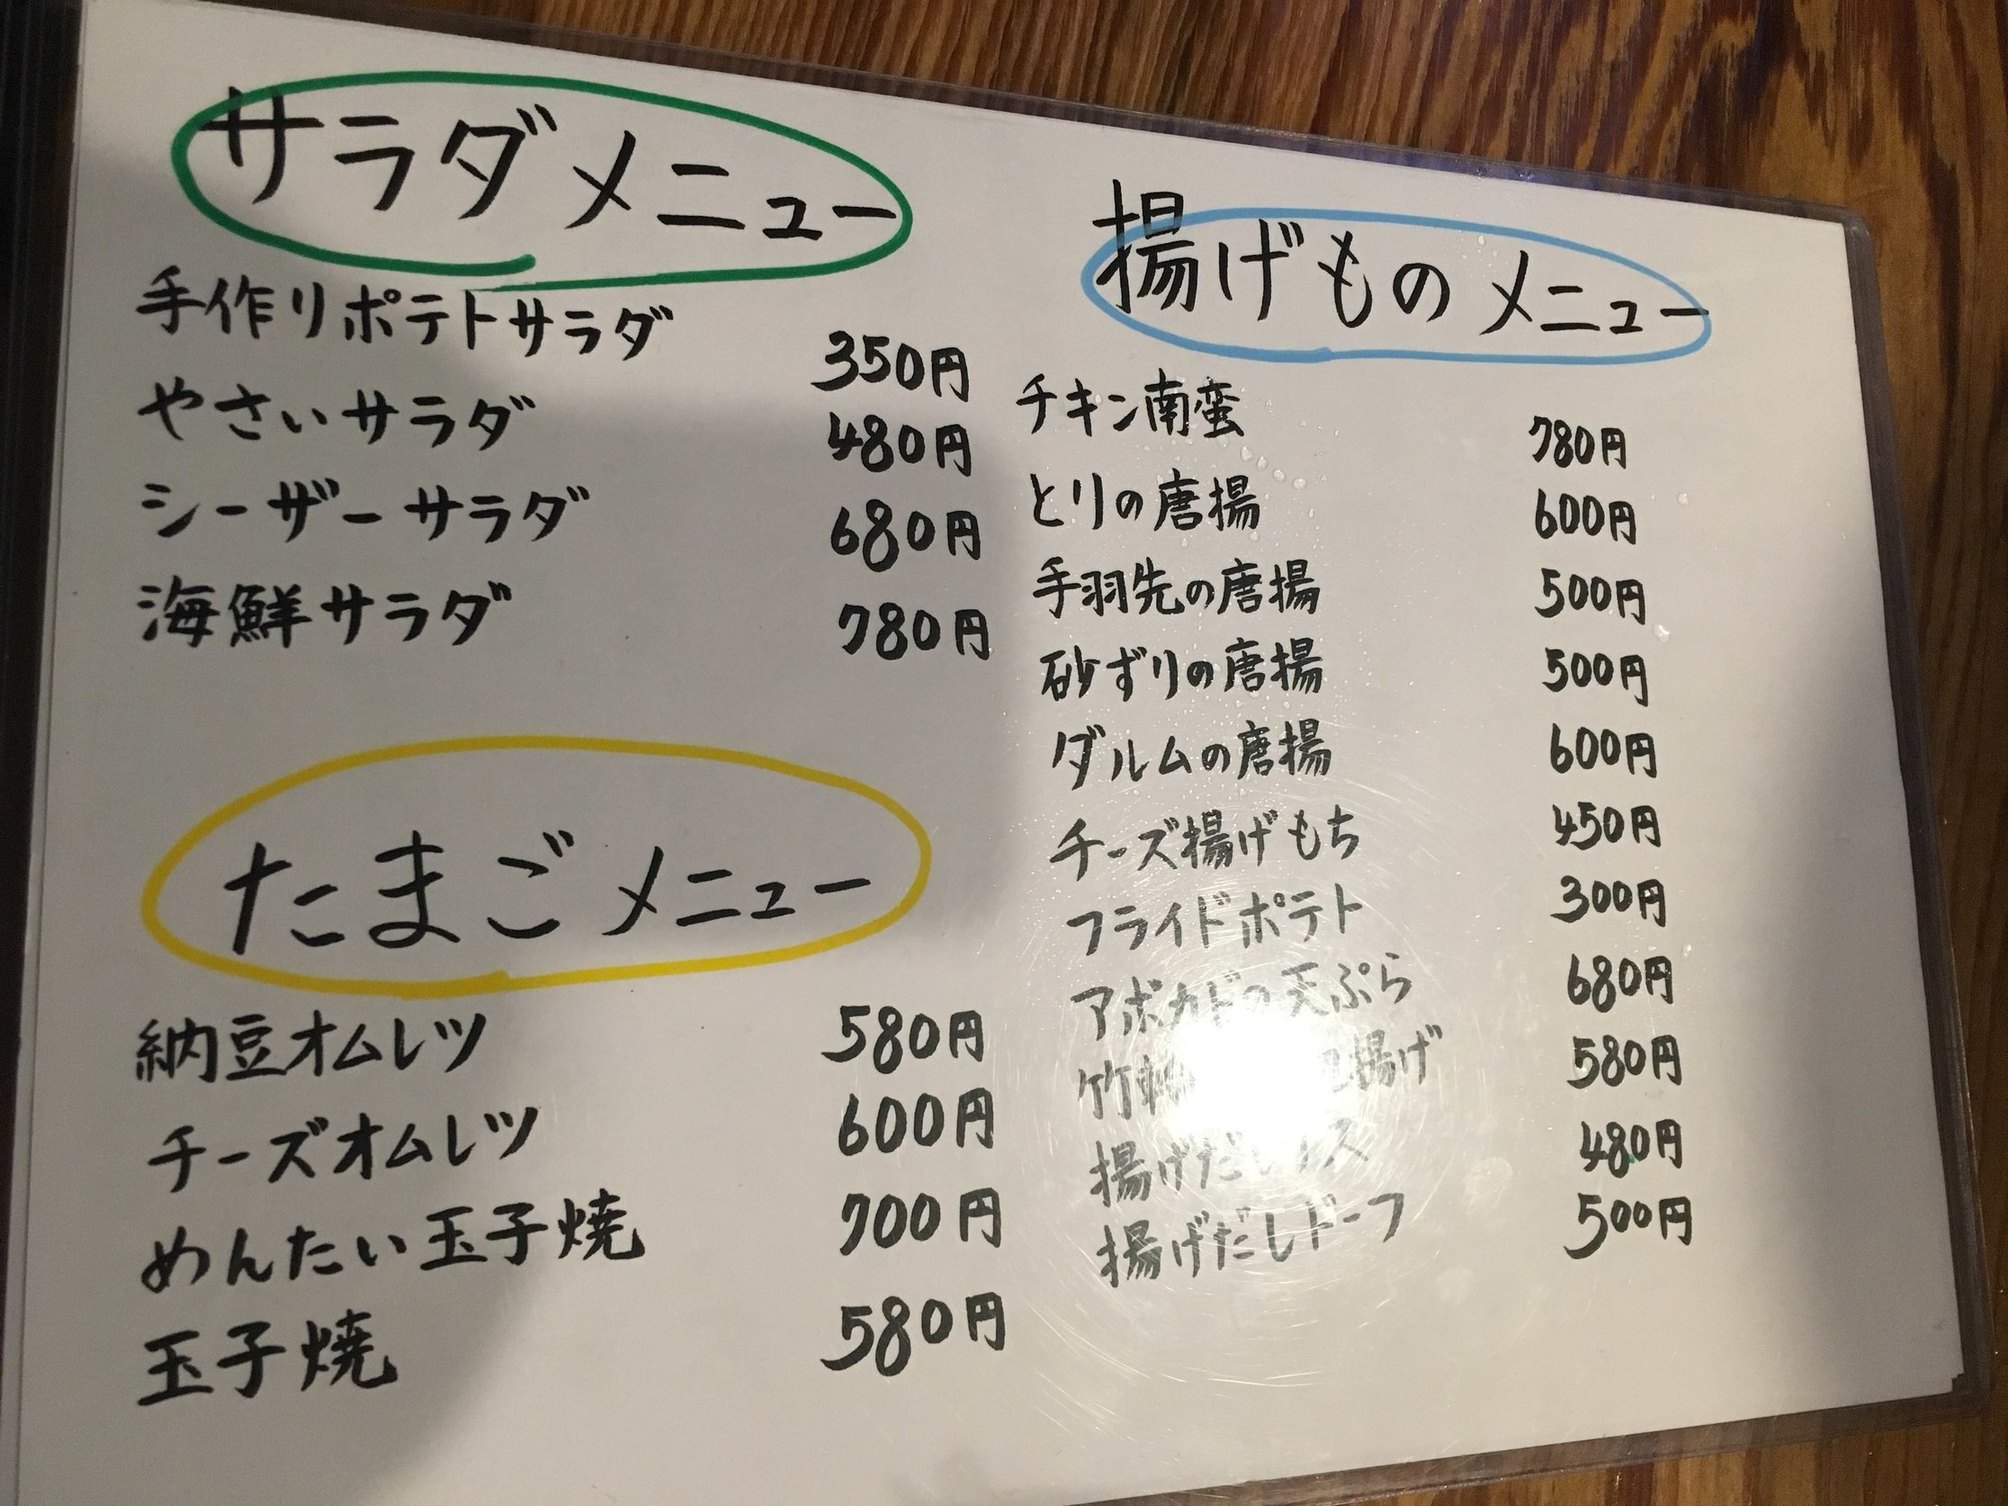 サラダメニュー
手作りポテトサラダ 350円
やさいサラダ 480円
シーザーサラダ 680円
海鮮サラダ 780円
たまごメニュー
納豆オムレツ 580円
チーズオムレツ 600円
めんたい玉子焼 700円
玉子焼 580円
揚げものメニュー
チキン南蛮 780円
とりの唐揚 600円
手羽先の唐揚 500円
砂ずりの唐揚 500円
ダルムの唐揚 600円
チーズ揚げもち 450円
フライドポテト 300円
アボカドの天ぷら 680円
竹輪 揚げ 580円
揚げだし ス 480円
揚げだしドーフ 500円